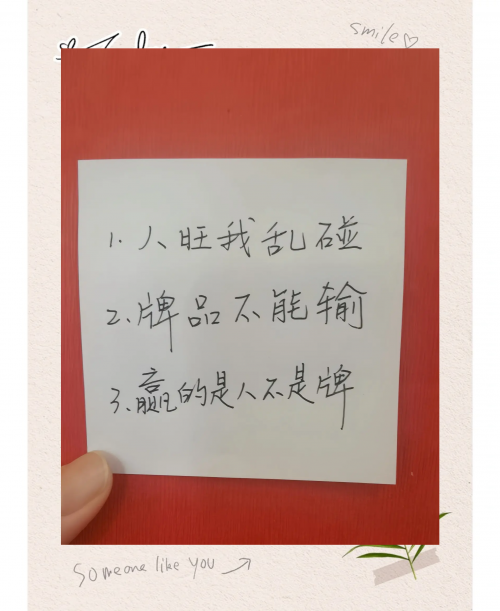 smile♡
1. 人旺我乱碰
2. 牌品不能输
3. 赢的是人不是牌
Someone like you